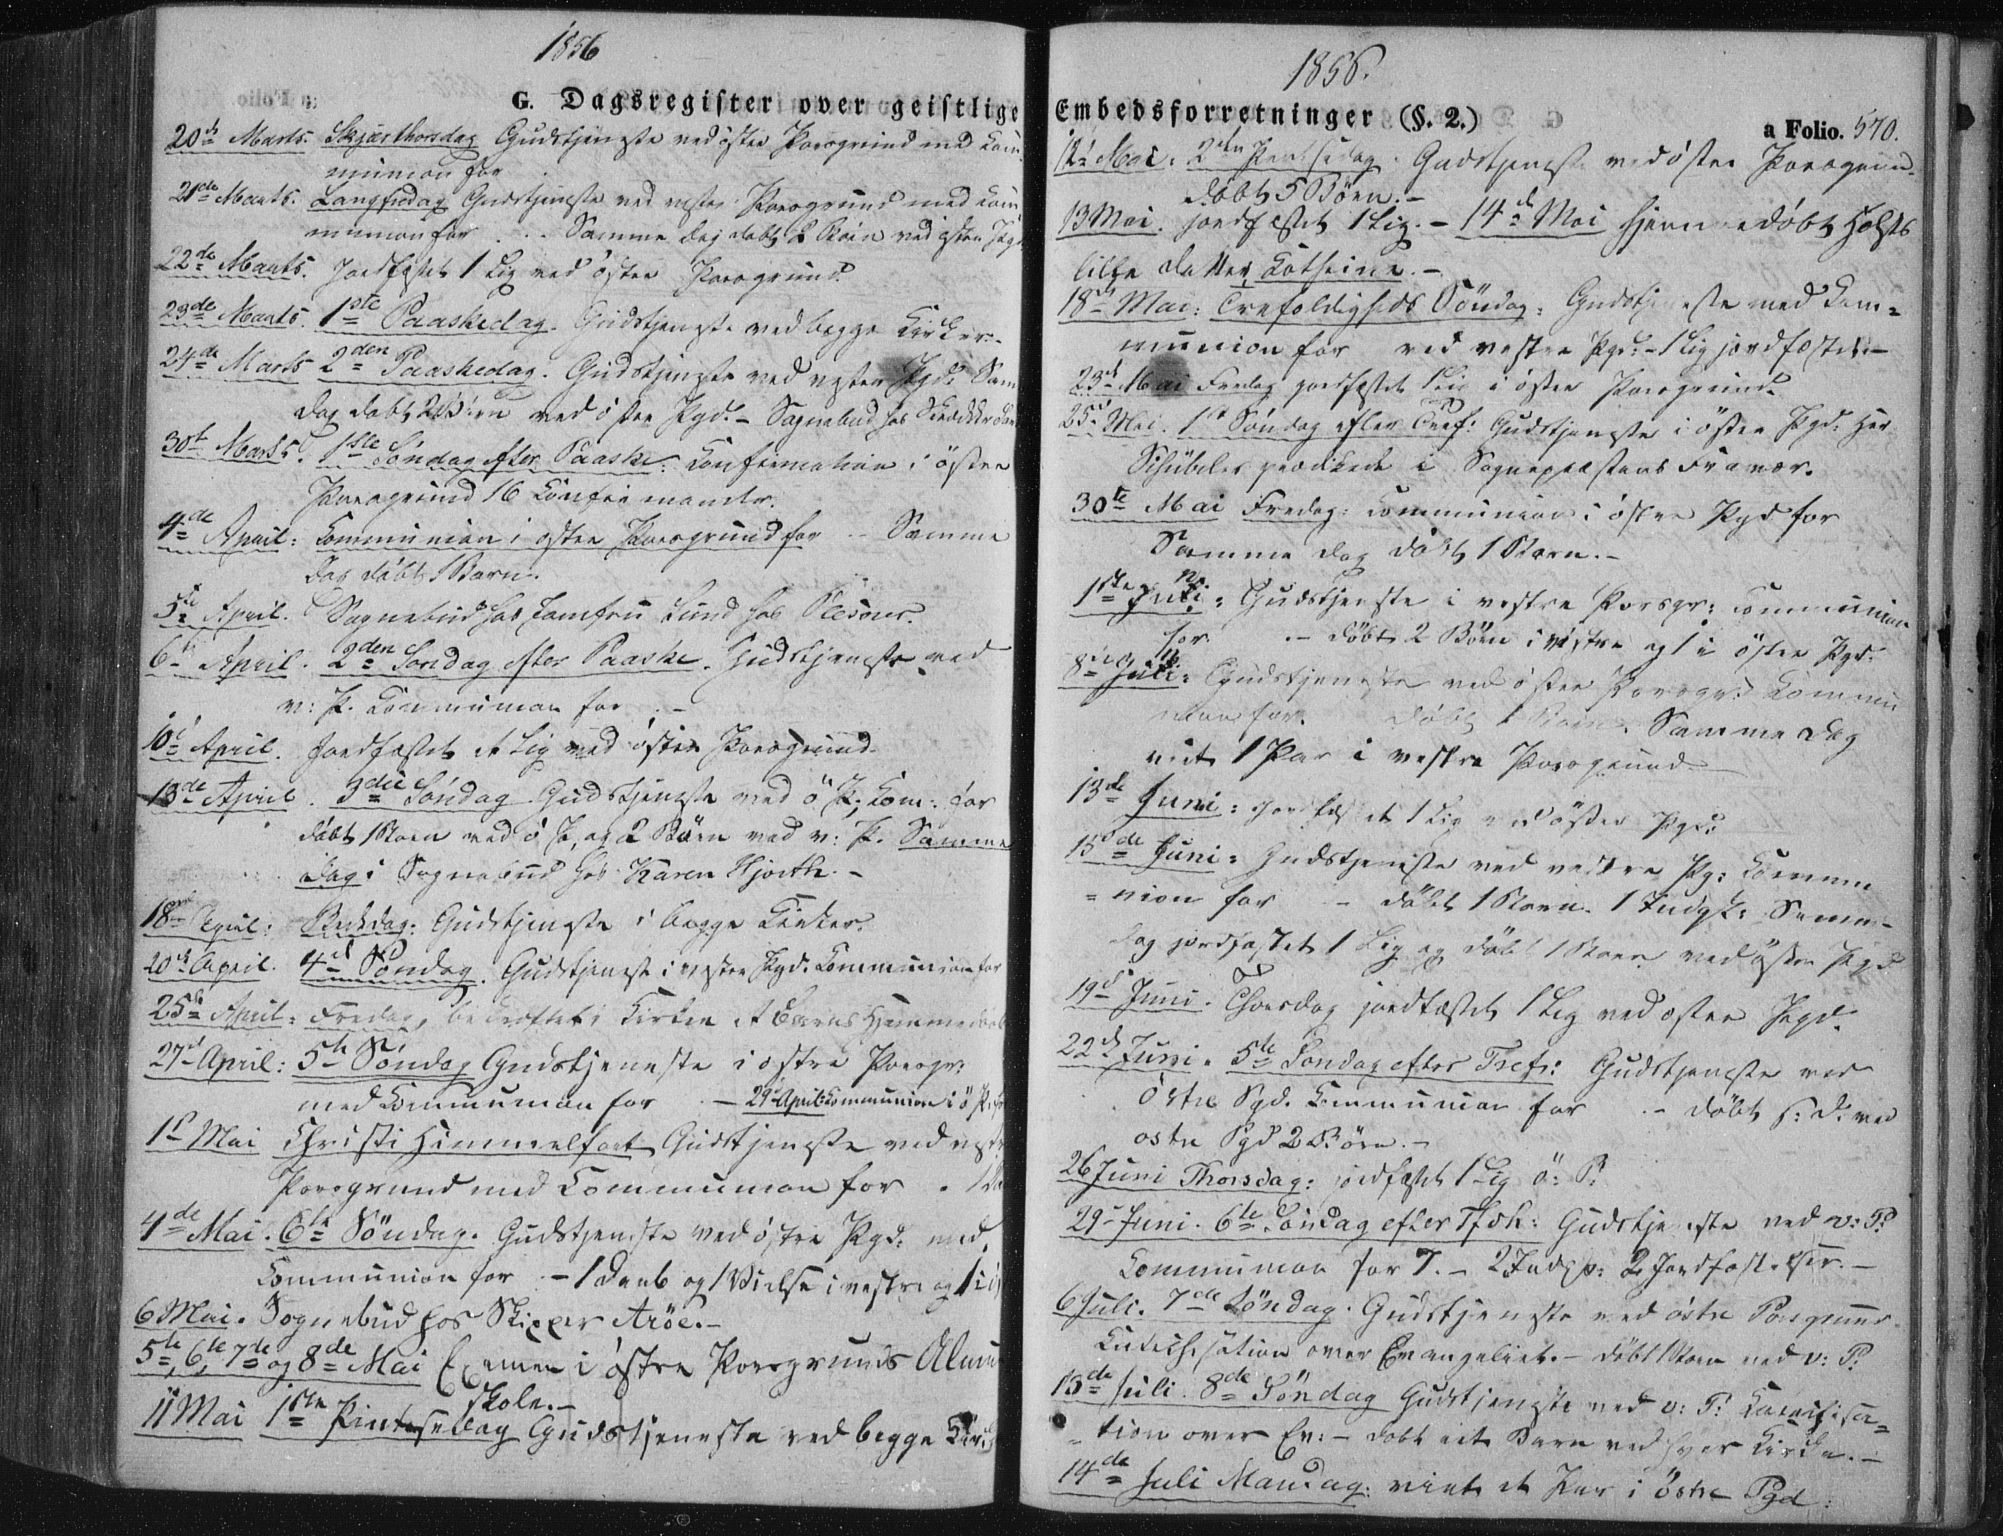 1856
G. Dagsregister over geistlige
20de Marts. Skjærthorsdag Gudstjeneste ved østre Porsgrund med Com-
munion for
21de Marts. Langfredag Gudstjeneste ved vestre Porsgrund med Com
munion for . . . Samme Dag døbt 2 Börn ved østre Pgd
22de Marts. Jordfæstet 1 Lig ved østre Porsgrund.
23de Marts. 1ste Paaskedag. Gudstjeneste ved begge Kirker.
24de Marts 2den Paaskedag. Gudstjeneste ved vestre Pgd: Sam
Dag døbt 2 Börn ved østre Pgd. - Sognebud hos
30te Marts. 1ste Søndag efter Paaske: Confirmation i östre
Porsgrund 16 Confirmander.
4de April: Communion i østre Porsgrund for .. Samme
Dag døbt 1 Barn.
5te April. Sognebud hos Jomfru Lund hos
6te April. 2den Søndag efter Paaske. Gudstjeneste ved
v: P. Communion for . -
10de April. Jordfæstet et Lig ved østre Porsgrund
13de April. 3die Søndag Gudstjeneste ved ö P; Com: for
døbt 1 Barn ved ö P. og 2 Börn ved v: P. Samme
Dag i Sognebud hos Karen Hjorth. -
18de April: Bededag: Gudstjeneste i begge Kirker.
20de April. 4de Søndag. Gudstjeneste i vestre Pgd. Communion for
25de April: Fredag, bekræftet i Kirken et Barns Hjemmedaab
27de April: 5te Søndag Gudstjeneste i østre Porsgr:
med Communion for - 29 April Communion i ö P. for
1ste Mai Christi Himmelfart Gudstjeneste ved vestre
Porsgrund med Communion for . 1
4de Mai. 6te Søndag. Gudstjeneste ved østre Pgd: med
Communion for - 1 Daab og 1 Vielse i vestre og 1 i ö
6 Mai. Sognebud hos Skipper Aröe. -
5te, 6te 7de og 8de Mai Examen i østre Porsgrunds Almu
skole. -
11 Mai 1ste Pintsedag Gudstjeneste ved begge Kirk
1856.
Embedsforretninger (§. 2.)
a Folio. 570.
12te Mai. 2den Pintsedag. Gudstjeneste ved østre Porsgrund.
døbt 5 Börn. -
13 Mai. jordfæstet 1 Lig. - 14de Mai Hjemmedøbt Holsts
lille Datter Cathrine. -
18de Mai: Trefoldigheds Söndag: Gudstjeneste med Com-
munion for ved vestre Pgd: - 1 Lig jordfæstet. -
23de Mai Fredag jordfæstet 1 Lig i øster Porsgrund.
25de Mai. 1ste Søndag efter Tref: Gudstjeneste i östre Pgd: Her
prædikede i Sognepræstens Fravær.
30te Mai Fredag: Communion i østre Pgd for
Samme Dag døbt 1 Barn. -
1ste Juni: Gudstjeneste i vestre Porsgr: Communion
for - døbt 2 Börn i vestre og 1 i østre Pgd.
8de Juni: Gudstjeneste ved østre Porsgr: Commu
nion for. døbt 1 Barn. Samme Dag
viet 1 Par i vestre Porsgrund
13de Juni: jordfæstet 1 Lig ved øster Pgd:
15de Juni: Gudstjeneste ved vestre Pg: Commu
-nion for - døbt 1 Barn. 1 Indgk: Samme
Dag jordfæstet 1 Lig og døbt 1 Barn ved østre Pgd
19de Juni. Thorsdag jordfæstet 1 Lig ved østre Pgd.
22de Juni. 5te Søndag efter Tref: Gudstjeneste ved
Östre Pgd. Communion for .- døbt s: D: ved
østre Pgd 2 Börn. -
26 Juni Thorsdag: jordfæstet 1 Lig ö: P:
29de Juni. 6te Søndag efter Tfgh: Gudstjeneste ved v: P:
Communion for 7. - 2 Indgk: 2 Jordfæstelser. -
6 Juli. 7de Søndag. Gudstjeneste ved østre Porsgrund.
Catechisation over Evangeliet. - døbt 1 Barn ved v: P:
13de Juli. 8de Søndag Gudstjeneste ved v: P: Catechisa-
-tion over Ev: - døbt eet Barn ved hver Kirke. -
14de Juli Mandag: viet et Par i Östre Pgd: